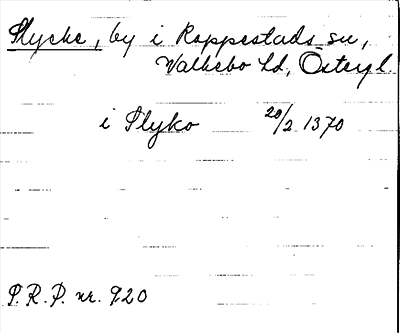 Slycke, by i Rappestads sn,
Valkebo hd, Östergl.
i Slyko 20/2 1370
S.R.P. nr. 920